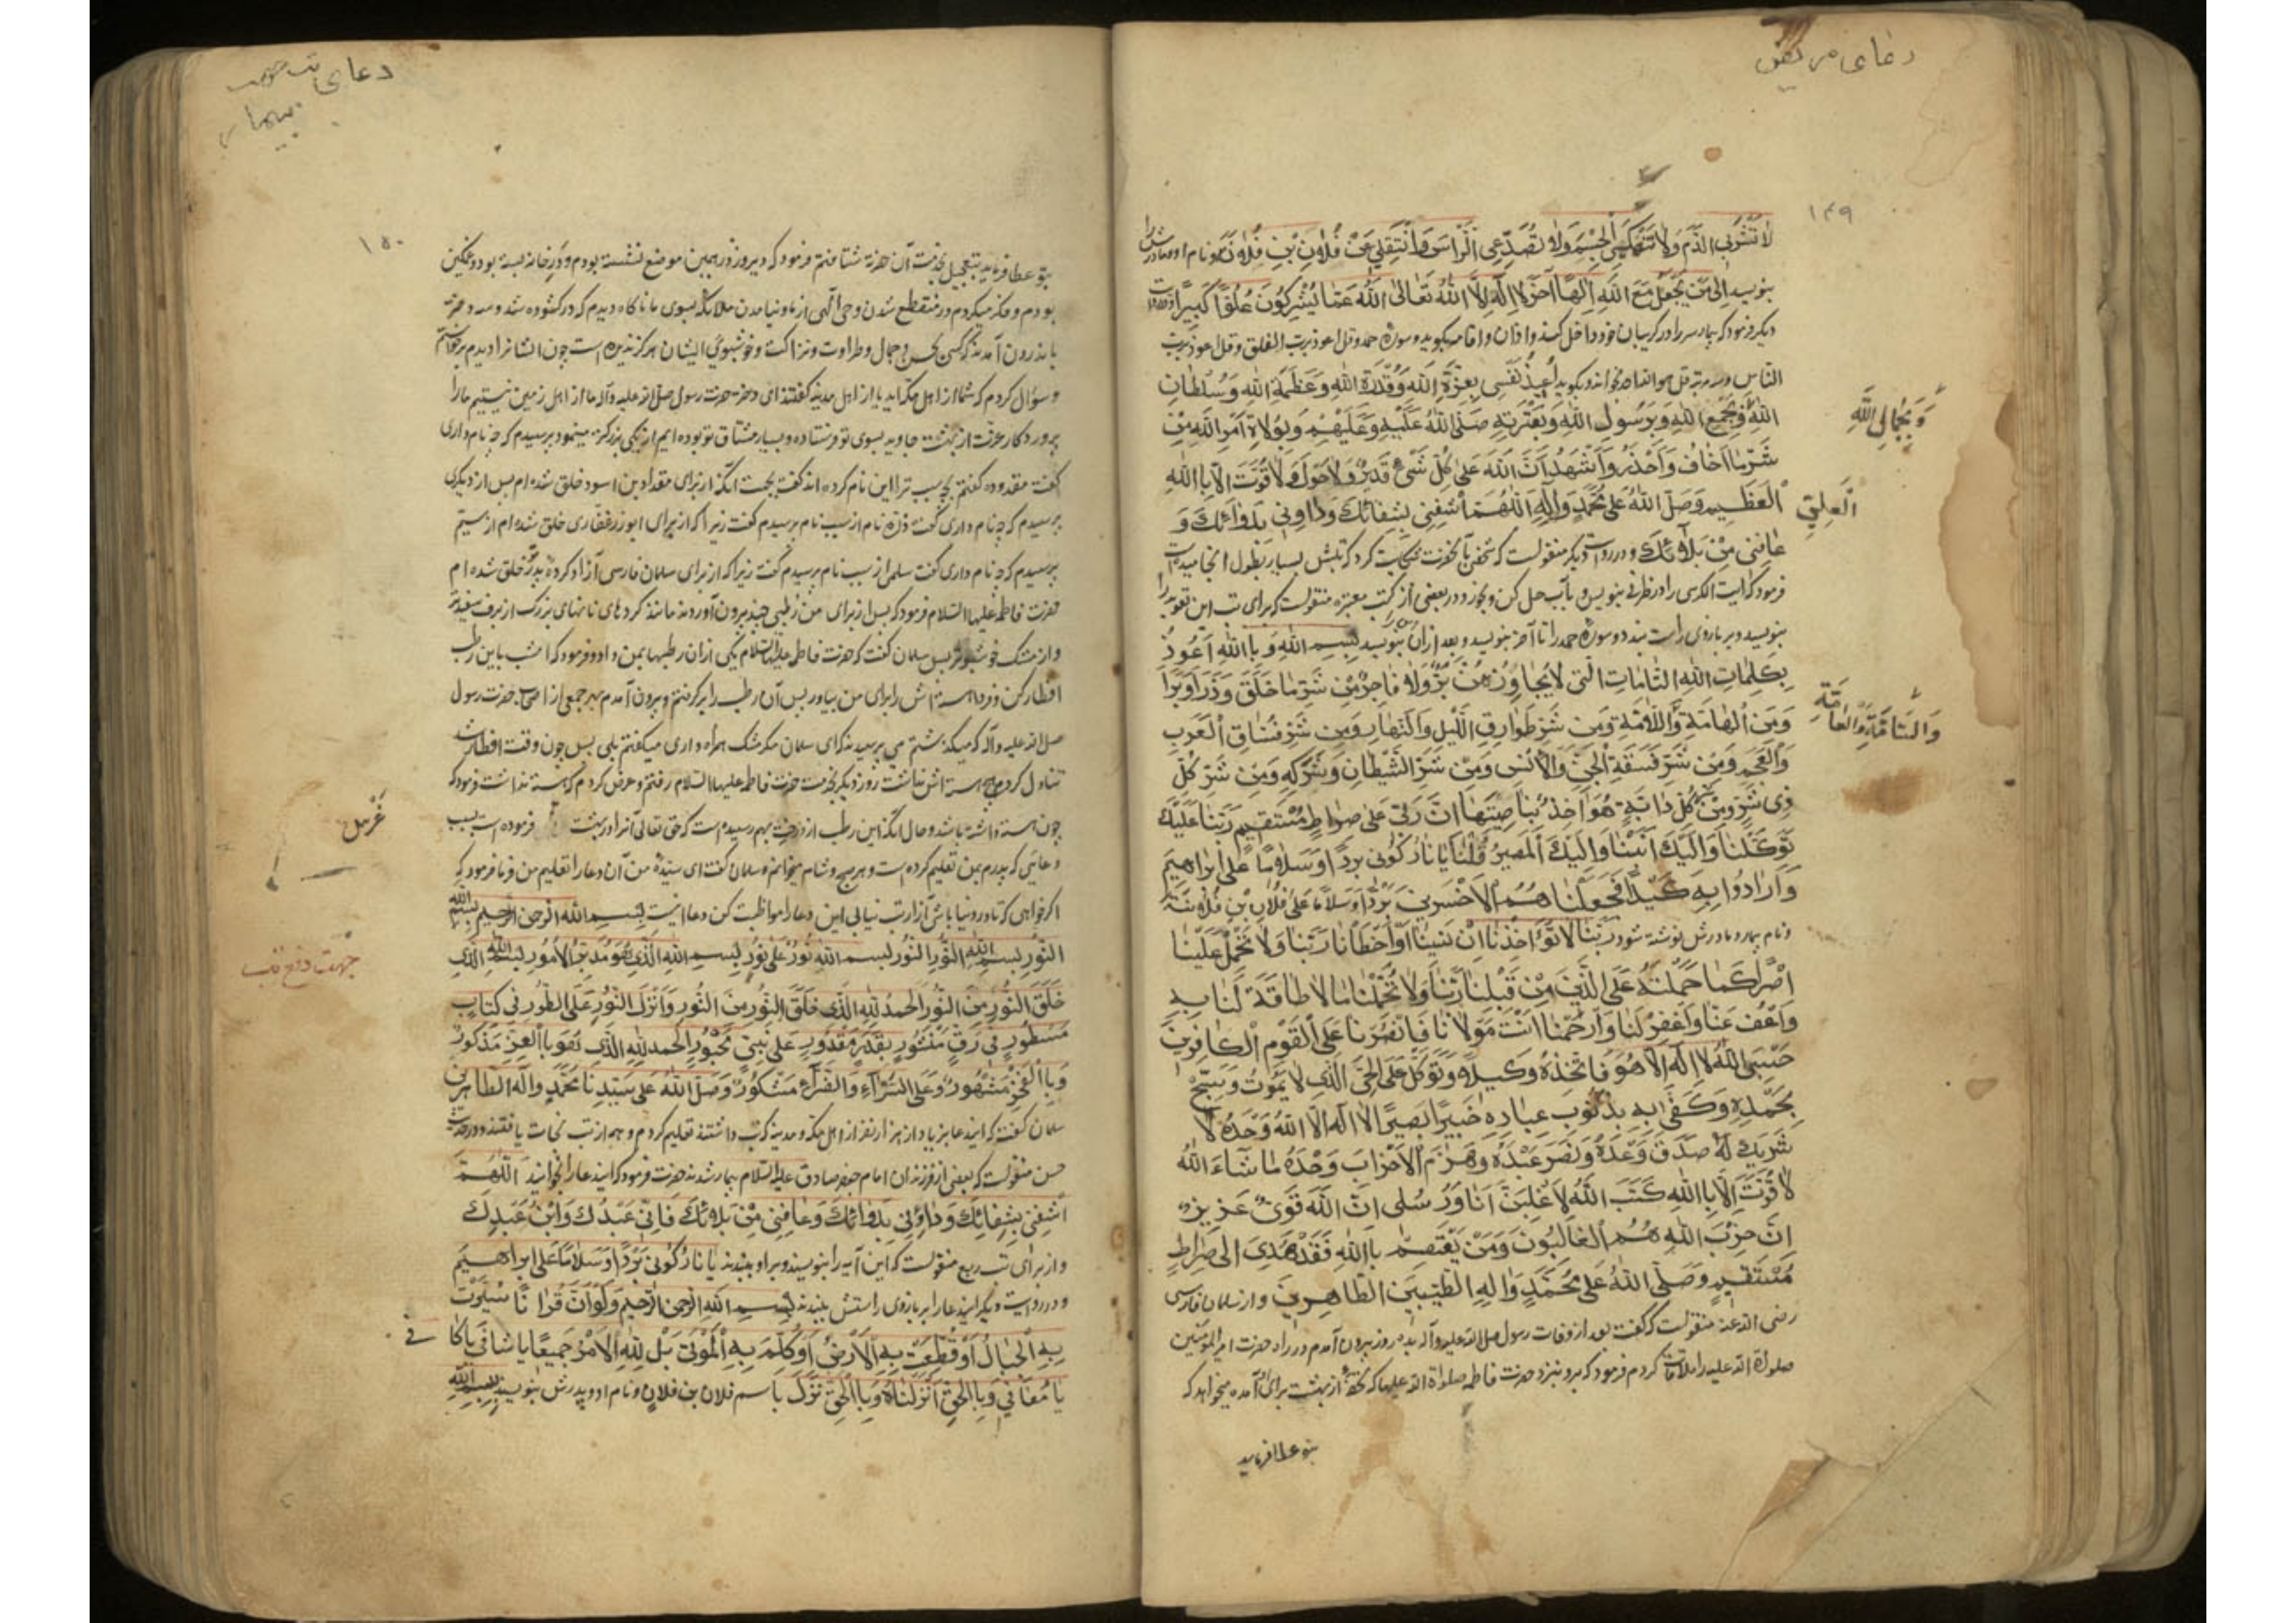 دعای مریض
۱۴۹
لا تَشْرَبِی الدَّمَ وَلا تَنْهَکِی الْجِسْمَ وَلا تُصَدِّعِی الرَّاسَ وَانْتَقِلِی عَنْ فُلانِ بْنِ فُلانَة و نام او و مادرش را
بنویسد اِلی مَنْ یَجْعَلُ مَعَ اللّٰهِ اِلٰهاً آخَرَ لا اِلٰهَ اِلَّا اللّٰهُ تَعالَی اللّٰهُ عَمّا یُشْرِکُونَ عُلُوّاً کَبیراً و در روایت
دیگر فرمود که بیمار سر را در گریبان خود داخل کند و اذان و اقامه بگوید و سورۀ حمد و قل اعوذ برب الفلق و قل اعوذ برب
الناس و سه مرتبه قل هو الله احد بخواند و بگوید اُعیذُ نَفْسی بِعِزَّةِ اللّٰهِ وَقُدْرَةِ اللّٰهِ وَعَظَمَةِ اللّٰهِ وَسُلْطانِ
اللّٰهِ وَبِجَمْعِ اللّٰهِ وَبِرَسُولِ اللّٰهِ وَبِعِتْرَتِهِ صَلَّی اللّٰهُ عَلَیْهِ وَعَلَیْهِمْ وَبِوُلاةِ اَمْرِ اللّٰهِ مِنْ
وَبِجَمالِ اللّٰهِ
شَرِّ ما اَخافُ وَاَحْذَرُ وَاَشْهَدُ اَنَّ اللّٰهَ عَلی کُلِّ شَیْءٍ قَدیرٌ وَلا حَوْلَ وَلا قُوَّةَ اِلّا بِاللّٰهِ
الْعَلِیِّ
الْعَظیمِ وَصَلَّی اللّٰهُ عَلی مُحَمَّدٍ وَآلِهِ اَللّٰهُمَّ اشْفِنی بِشِفائِکَ وَداوِنی بِدَوائِکَ وَ
عافِنی مِنْ بَلائِکَ و در روایت دیگر منقولست که شخصی بآنحضرت شکایت کرد که تبش بسیار بطول انجامیده است
فرمود که آیت الکرسی را در ظرفی بنویس و بآب حل کن و بخور و در بعضی از کتب معتبره منقولست که برای تب این تعویذ را
بنویسد و بر بازوی راست بندد و سورۀ حمد را تا آخر بنویسد و بعد از آن بنویسد بِسْمِ اللّٰهِ وَبِاللّٰهِ اَعُوذُ
بِکَلِماتِ اللّٰهِ التّامّاتِ الَّتی لا یُجاوِزُهُنَّ بَرٌّ وَلا فاجِرٌ مِنْ شَرِّ ما خَلَقَ وَذَرَاَ وَبَرَاَ
وَمِنَ الْهامَّةِ وَاللّامَّةِ وَمِنْ شَرِّ طَوارِقِ اللَّیْلِ وَالنَّهارِ وَمِنْ شَرِّ فُسّاقِ الْعَرَبِ
وَالسّامَّةِ وَالْعامَّةِ
وَالْعَجَمِ وَمِنْ شَرِّ فَسَقَةِ الْجِنِّ وَالْاِنْسِ وَمِنْ شَرِّ الشَّیْطانِ وَشَرَکِهِ وَمِنْ شَرِّ کُلِّ
ذی شَرٍّ وَمِنْ کُلِّ دابَّةٍ هُوَ آخِذٌ بِناصِیَتِها اِنَّ رَبّی عَلی صِراطٍ مُسْتَقیمٍ رَبَّنا عَلَیْکَ
تَوَکَّلْنا وَاِلَیْکَ اَنَبْنا وَاِلَیْکَ الْمَصیرُ قُلْنا یا نارُ کُونی بَرْداً وَسَلاماً عَلی اِبْراهیمَ
وَاَرادُوا بِهِ کَیْداً فَجَعَلْناهُمُ الْاَخْسَرینَ بَرْداً وَسَلاماً عَلی فُلانِ بْنِ فُلانَة
و نام بیمار و مادرش نوشته شود رَبَّنا لا تُؤاخِذْنا اِنْ نَسینا اَوْ اَخْطَأْنا رَبَّنا وَلا تَحْمِلْ عَلَیْنا
اِصْراً کَما حَمَلْتَهُ عَلَی الَّذینَ مِنْ قَبْلِنا رَبَّنا وَلا تُحَمِّلْنا ما لا طاقَةَ لَنا بِهِ
وَاعْفُ عَنّا وَاغْفِرْ لَنا وَارْحَمْنا اَنْتَ مَوْلانا فَانْصُرْنا عَلَی الْقَوْمِ الْکافِرینَ
حَسْبِیَ اللّٰهُ لا اِلٰهَ اِلّا هُوَ فَاتَّخِذْهُ وَکیلاً وَتَوَکَّلْ عَلَی الْحَیِّ الَّذی لا یَمُوتُ وَسَبِّحْ
بِحَمْدِهِ وَکَفی بِهِ بِذُنُوبِ عِبادِهِ خَبیراً بَصیراً لا اِلٰهَ اِلَّا اللّٰهُ وَحْدَهُ لا
شَریکَ لَهُ صَدَقَ وَعْدَهُ وَنَصَرَ عَبْدَهُ وَهَزَمَ الْاَحْزابَ وَحْدَهُ ما شاءَ اللّٰهُ
لا قُوَّةَ اِلّا بِاللّٰهِ کَتَبَ اللّٰهُ لَاَغْلِبَنَّ اَنَا وَرُسُلی اِنَّ اللّٰهَ قَوِیٌّ عَزیزٌ
اِنَّ حِزْبَ اللّٰهِ هُمُ الْغالِبُونَ وَمَنْ یَعْتَصِمْ بِاللّٰهِ فَقَدْ هُدِیَ اِلی صِراطٍ
مُسْتَقیمٍ وَصَلَّی اللّٰهُ عَلی مُحَمَّدٍ وَآلِهِ الطَّیِّبینَ الطّاهِرینَ و از سلمان فارسی
رضی الله عنه منقولست که گفت بعد از وفات رسول صلی الله علیه و آله بده روز بیرون آمدم در راه حضرت امیرالمؤمنین
صلوات الله علیه را ملاقات کردم فرمود که برو بنزد حضرت فاطمه صلواة الله علیها که تحفۀ از بهشت برای او آمده میخواهد که
بتو عطا فرماید
دعای تب جهت
بیمار
۱۵۰
بتو عطا فرماید بتعجیل بخدمت آن حضرت شتافتم فرمود که دیروز در همین موضع نشسته بودم و در خانه بسته بود و غمگین
بودم و فکر میکردم در منقطع شدن وحی الٓهی از ما و نیامدن ملائکه بسوی ما ناگاه دیدم که در گشوده شد و سه دختر
باندرون آمدند که کسی بحسن و جمال و طراوت و نزاکت و خوشبوئی ایشان هرگز ندیده است چون ایشانرا دیدم برخاستم
و سؤال کردم که شما از اهل مکه‌اید یا از اهل مدینه گفتند ای دختر حضرت رسول صلی الله علیه و آله ما از اهل زمین نیستیم ما را
پروردگار عزت از بهشت جاوید بسوی تو فرستاده و بسیار مشتاق تو بوده‌ایم از یکی بزرگتر مینمود پرسیدم که چه نام داری
گفت مقدوده گفتم بچه سبب ترا این نام کرده‌اند گفت بجهت آنکه از برای مقداد بن اسود خلق شده‌ام پس از دیگری
پرسیدم که چه نام داری گفت ذرّه نام از سبب نام پرسیدم گفت زیرا که از برای ابوذر غفاری خلق شده‌ام از سیّم
پرسیدم که چه نام داری گفت سلمی از سبب نام پرسیدم گفت زیرا که از برای سلمان فارسی آزاد کردۀ پدر تو خلق شده‌ام
حضرت فاطمه علیها السلام فرمود که پس از برای من رطبی چند بیرون آوردند مانند گرده‌های نانهای بزرگ از برف سفیدتر
و از مشک خوشبوتر پس سلمان گفت که حضرت فاطمه علیها السلام یکی از آن رطبها بمن داد و فرمود که امشب باین رطب
افطار کن و فردا هسته‌اش را برای من بیاور پس آن رطب را برگرفتم و بیرون آمدم بهر جمعی از اصحاب حضرت رسول
صلی الله علیه و آله که میگذشتم می‌پرسیدند که ای سلمان مگر مشک همراه داری میگفتم بلی پس چون وقت افطار شد
تناول کردم هیچ هسته‌اش نداشت روز دیگر بخدمت حضرت فاطمه علیها السلام رفتم و عرض کردم که هسته نداشت فرمود که
چون هسته داشته باشد و حال آنکه این رطب از درختی بهم رسیده است که حق تعالی آنرا در بهشت فرموده است بسبب
غرس
دعائی که پدرم بمن تعلیم کرده است و هر صبح و شام میخوانم و سلمان گفت ای سیّدۀ من آن دعا را تعلیم من فرما فرمود که
اگر خواهی که تا در دنیا باشی آزار تب نیابی این دعا را مواظبت کن دعا اینست بِسْمِ اللّٰهِ الرَّحْمٰنِ الرَّحیمِ بِسْمِ اللّٰهِ
النُّورِ بِسْمِ اللّٰهِ النُّورِ النُّورِ بِسْمِ اللّٰهِ نُورٌ عَلی نُورٍ بِسْمِ اللّٰهِ الَّذی هُوَ مُدَبِّرُ الْاُمُورِ بِسْمِ اللّٰهِ الَّذی
جهت دفع تب
خَلَقَ النُّورَ مِنَ النُّورِ اَلْحَمْدُ لِلّٰهِ الَّذی خَلَقَ النُّورَ مِنَ النُّورِ وَاَنْزَلَ النُّورَ عَلَی الطُّورِ فی کِتابٍ
مَسْطُورٍ فی رَقٍّ مَنْشُورٍ بِقَدَرٍ مَقْدُورٍ عَلی نَبِیٍّ مَحْبُورٍ اَلْحَمْدُ لِلّٰهِ الَّذی هُوَ بِالْعِزِّ مَذْکُورٌ
وَبِالْفَخْرِ مَشْهُورٌ وَعَلَی السَّرّاءِ وَالضَّرّاءِ مَشْکُورٌ وَصَلَّی اللّٰهُ عَلی سَیِّدِنا مُحَمَّدٍ وَآلِهِ الطّاهِرینَ
سلمان گفت که این دعا بزیاد از هزار نفر از اهل مکه و مدینه که تب داشتند تعلیم کردم و همه از تب نجات یافتند و در حدیث
حسن منقولست که بعضی از فرزندان امام جعفر صادق علیه السلام بیمار شدند حضرت فرمود که این دعا را بخوانید اَللّٰهُمَّ
اشْفِنی بِشِفائِکَ وَداوِنی بِدَوائِکَ وَعافِنی مِنْ بَلائِکَ فَاِنّی عَبْدُکَ وَابْنُ عَبْدِکَ
و از برای تب ربع منقولست که این آیه را بنویسند و بر او بندند یا نارُ کُونی بَرْداً وَسَلاماً عَلی اِبْراهیمَ
و در روایت دیگر این دعا را بر بازوی راستش بندند بِسْمِ اللّٰهِ الرَّحْمٰنِ الرَّحیمِ وَلَوْ اَنَّ قُرْآناً سُیِّرَتْ
بِهِ الْجِبالُ اَوْ قُطِّعَتْ بِهِ الْاَرْضُ اَوْ کُلِّمَ بِهِ الْمَوْتی بَلْ لِلّٰهِ الْاَمْرُ جَمیعاً یا شافی یا کا
فی
یا مُعافی وَبِالْحَقِّ اَنْزَلْناهُ وَبِالْحَقِّ نَزَلَ باسم فلان بن فلان و نام او و پدرش بنویسد بِسْمِ اللّٰهِ